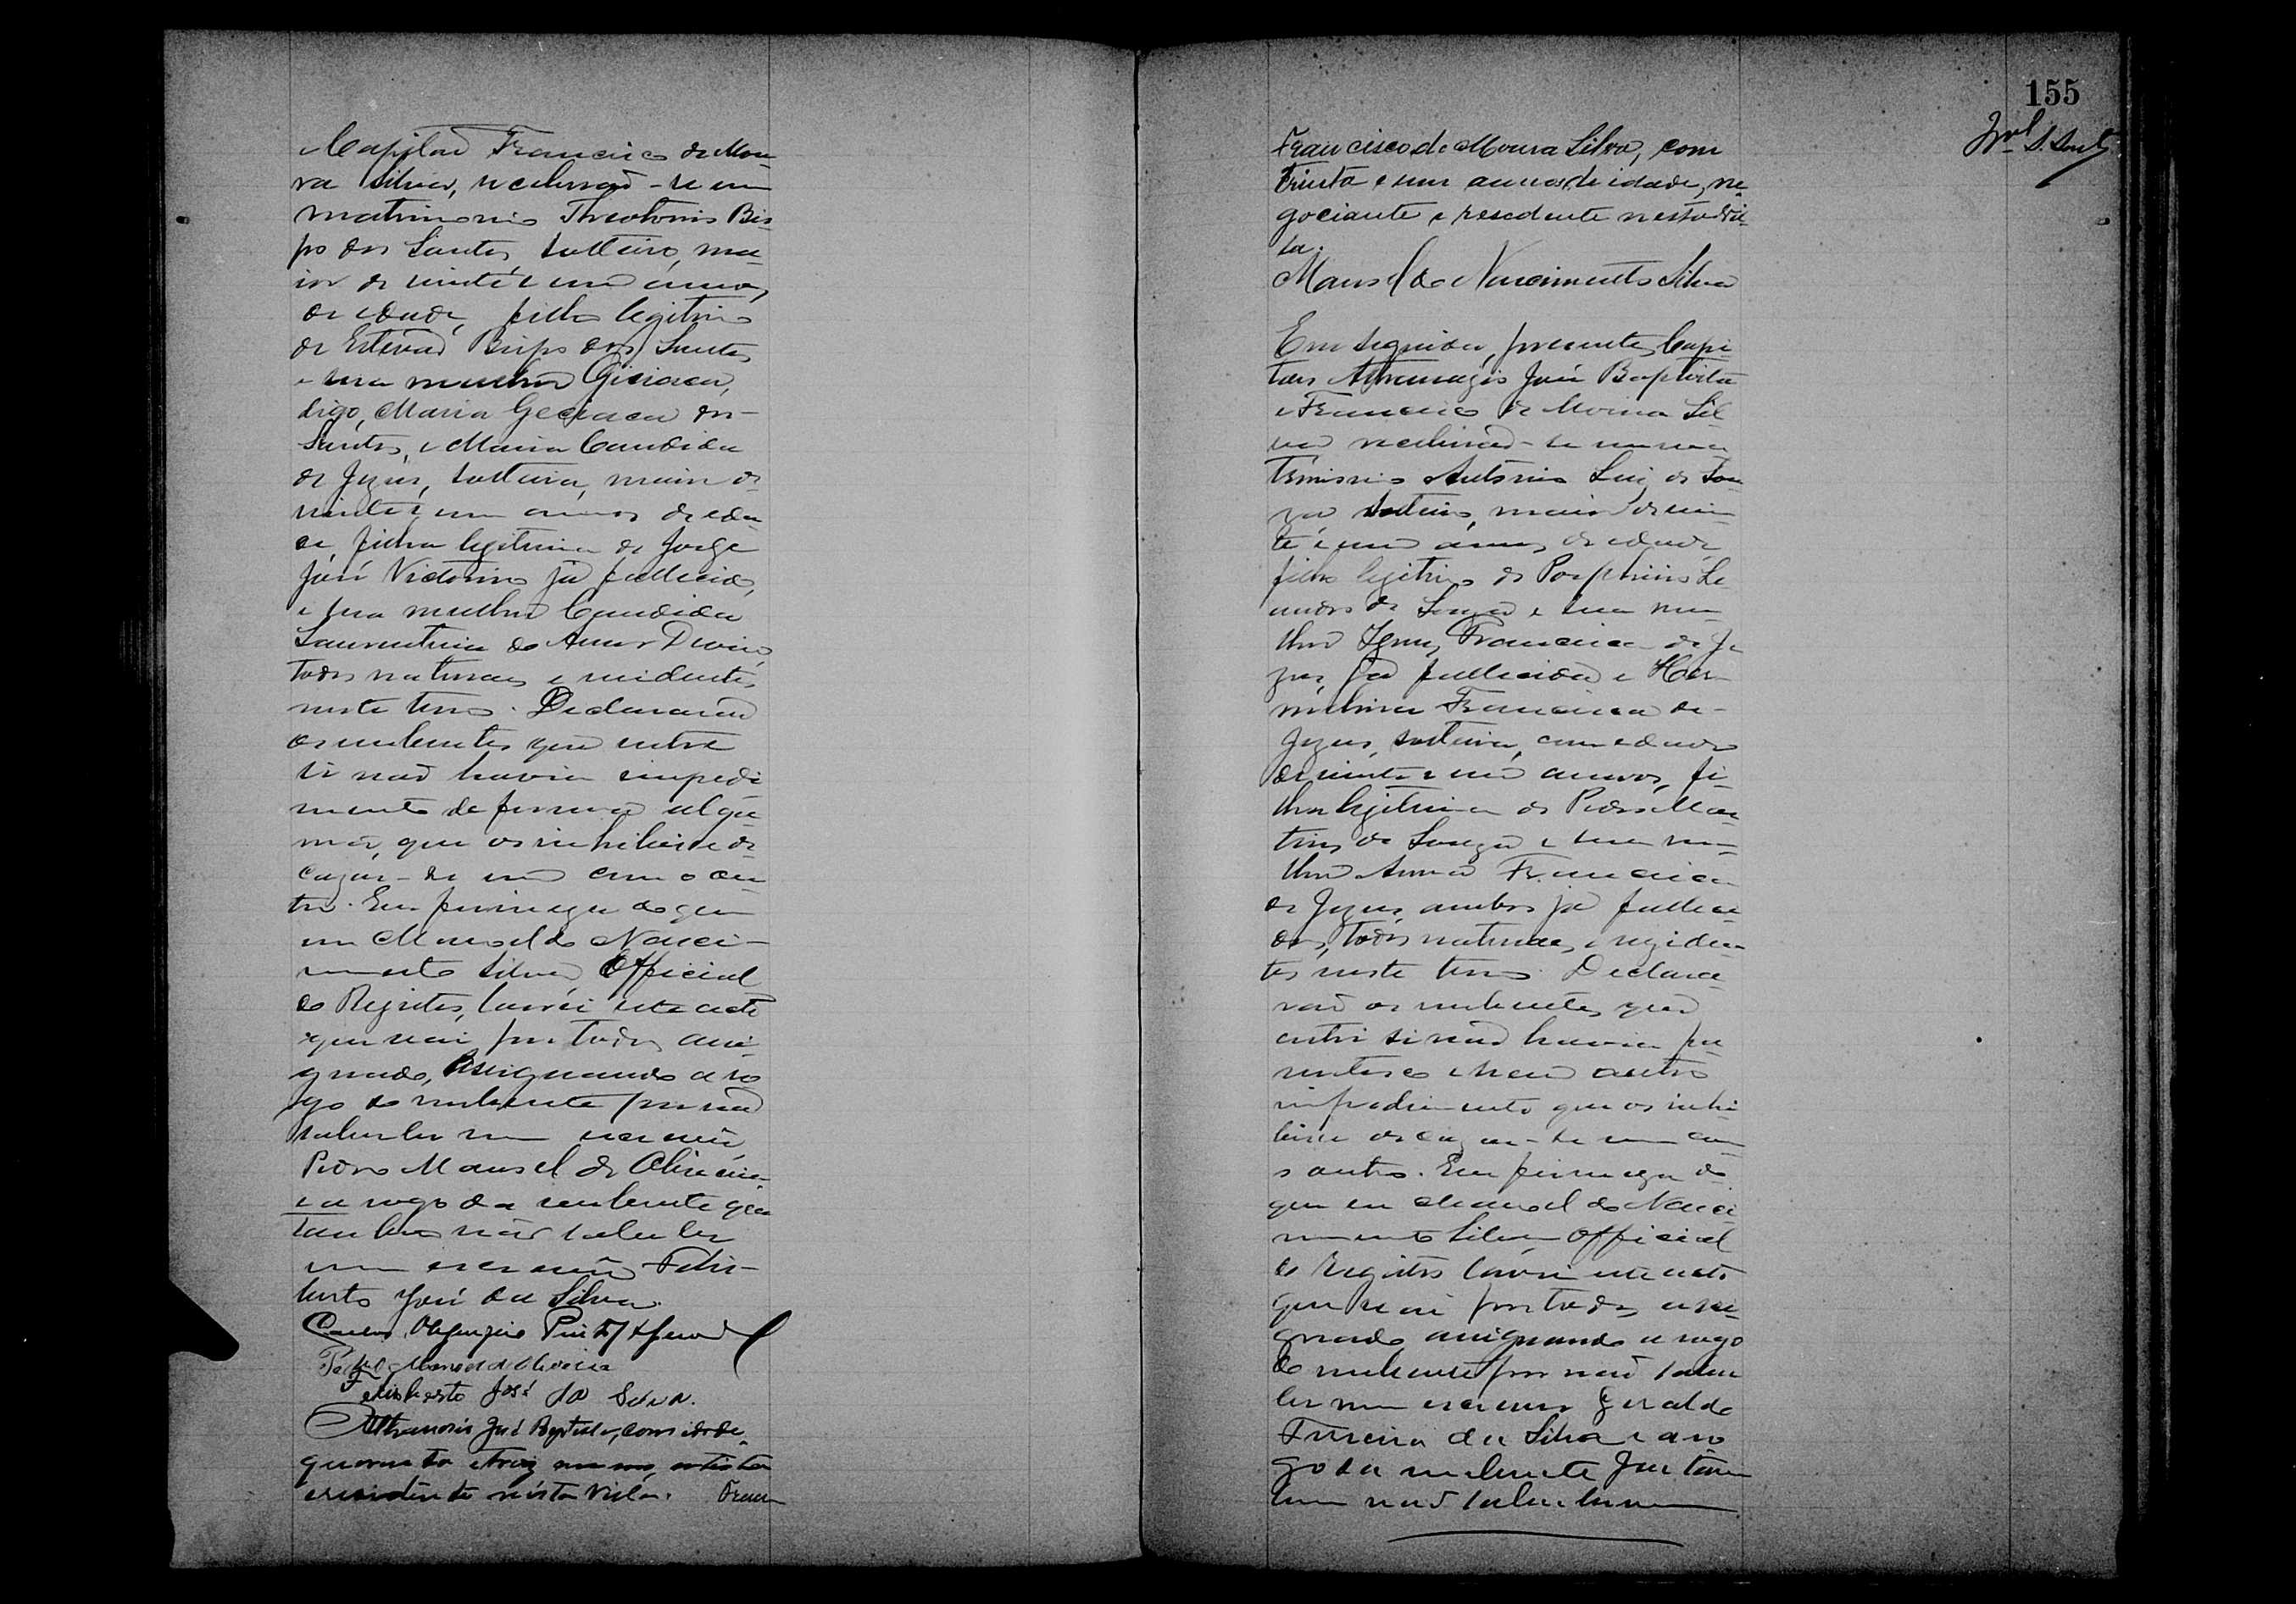 Capitão Francisco de Mou-
ra Silva, receberão-se em
matrimonio Theotonio Bis-
po dos Santos, solteiro, ma-
ior de vinte e um annos,
de edade, filho legitimo
de Estevão Bispo dos Santos
e sua mulher Giciaca,
digo, Maria Geciaca dos
Santos, e Maria Candida
de Jezus, solteira, maior de
vinte e um annos de eda-
de, filha legitima de Jorge
José Victorino já fallecido,
e sua mulher Candida
Laurentina do Amor Divino,
todos naturaes e residentes
neste termo. Declararão
os nubentes que entre
si não havia impedi
mento de forma algu-
ma, que os inhibisse de
cazar-se um com o ou-
tro. Em firmeza do que
eu Manoel do Nasci-
mento Silva, Official
do Registro, lavrei este acto
que vai por todos assi-
gnado, assignando a ro-
go do nubente por não
saber ler nem escrever,
Pedro Manoel de Oliveira
e a rogo da nubente que
tambem não sabe ler
nem escrever Felis-
berto José da Silva.
Pedro Manoel de Oliveira
Felisberto José da Silva.
Athanazio José Baptista, com idade
quarenta e trez annos, artista
e residente nésta Villa. Fran
155
Francisco de Moura Silva, com
trinta e um annos de idade, ne-
gociante e resedente nesta Vil-
la.
Manoel do Nascimento Silva
Em seguida, presentes, Capi-
tão Athanazio José Baptista
e Francisco de Moura Sil
va receberão-se em ma
trimonio Antonio Luiz de Sou
za solteiro, maior de vin-
te e um annos de edade
filho legitimo de Porphirio Le
andro de Souza e sua mu-
lher Francisca de Je
zus, já fallecida e Her-
melina Francisca de
Jezus, solteira, com edade
de vinte e um annos, fi-
lha legitima de Pedro Mar
tins de Souza e sua mu-
lher Anna Francisca
de Jezus, ambos já falleci
dos, todos naturaes, e reziden
tes neste termo. Declara
rão os nubentes que
entre si não havia pa
rentesco e nem outro
impedimento que os inhi
bisse de cazar-se um com
o outro. Em firmeza do
que eu Manoel do Nasci
mento Silva Official
do Registro lavrei este acto
que vai por todos assi-
gnado assignando a rogo
do nubente por não saber
ler nem escrever Geraldo
Ferreira da Silva e a ro
go da nubente que tam
bem não sabe ler nem